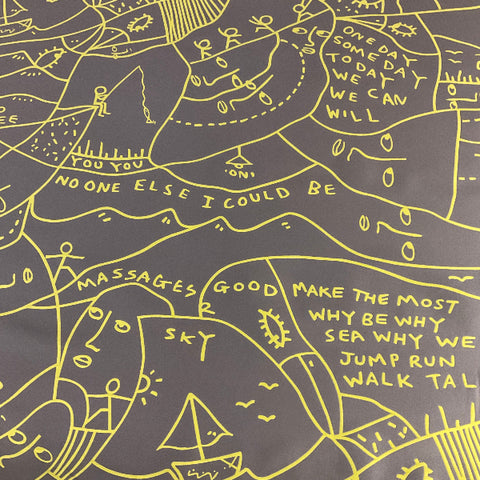 ONE DAY
SOME DAY
TODAY
WE
WE CAN
WILL
EE
YOU YOU
ON
NO ONE ELSE I COULD BE
MASSAGES GOOD
2
SKY
MAKE THE MOST
WHY BE WHY
SEA WHY WE
JUMP RUN
WALK TAL